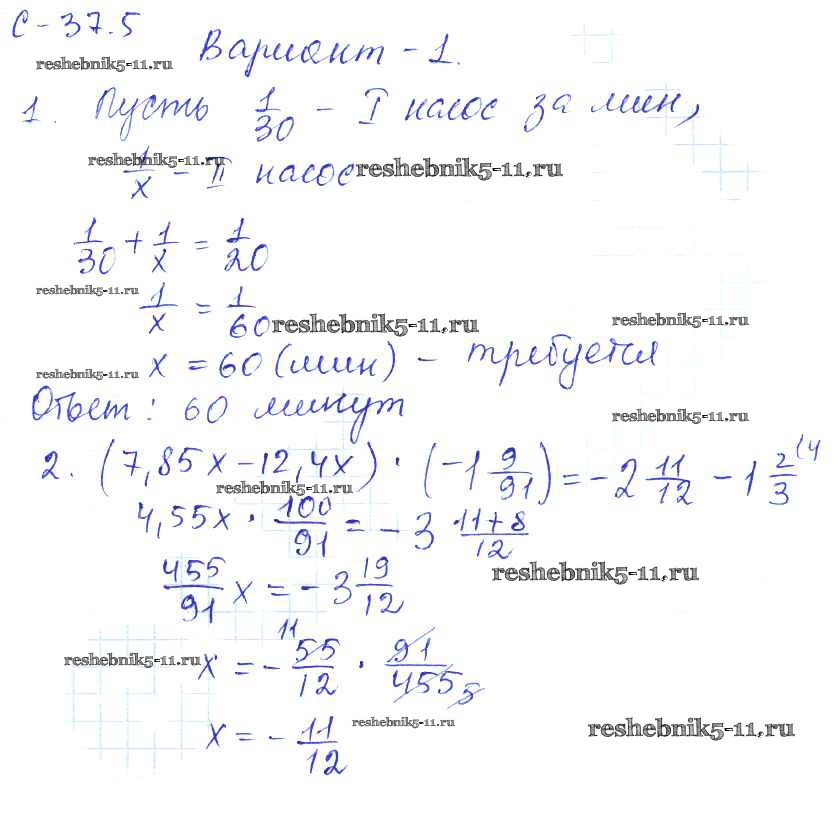 С-37.5
Вариант-1.
reshebnik5-11.ru
1. Пусть 1/30 - I насос за мин,
reshebnik5-11.ru
1/x - II насос
reshebnik5-11.ru
1/30 + 1/x = 1/20
reshebnik5-11.ru
1/x = 1/60
reshebnik5-11.ru
reshebnik5-11.ru
x = 60 (мин) - требуется
reshebnik5-11.ru
Ответ: 60 минут
reshebnik5-11.ru
2. (7,85x-12,4x) · (-1 9/91) = -2 11/12 - 1 2/3 (4
reshebnik5-11.ru
4,55x · 100/91 = -3 · 11+8/12
reshebnik5-11.ru
455/91 x = -3 19/12
x = - 55/12 · 91/455 11 5
reshebnik5-11.ru
x = - 11/12
reshebnik5-11.ru
reshebnik5-11.ru